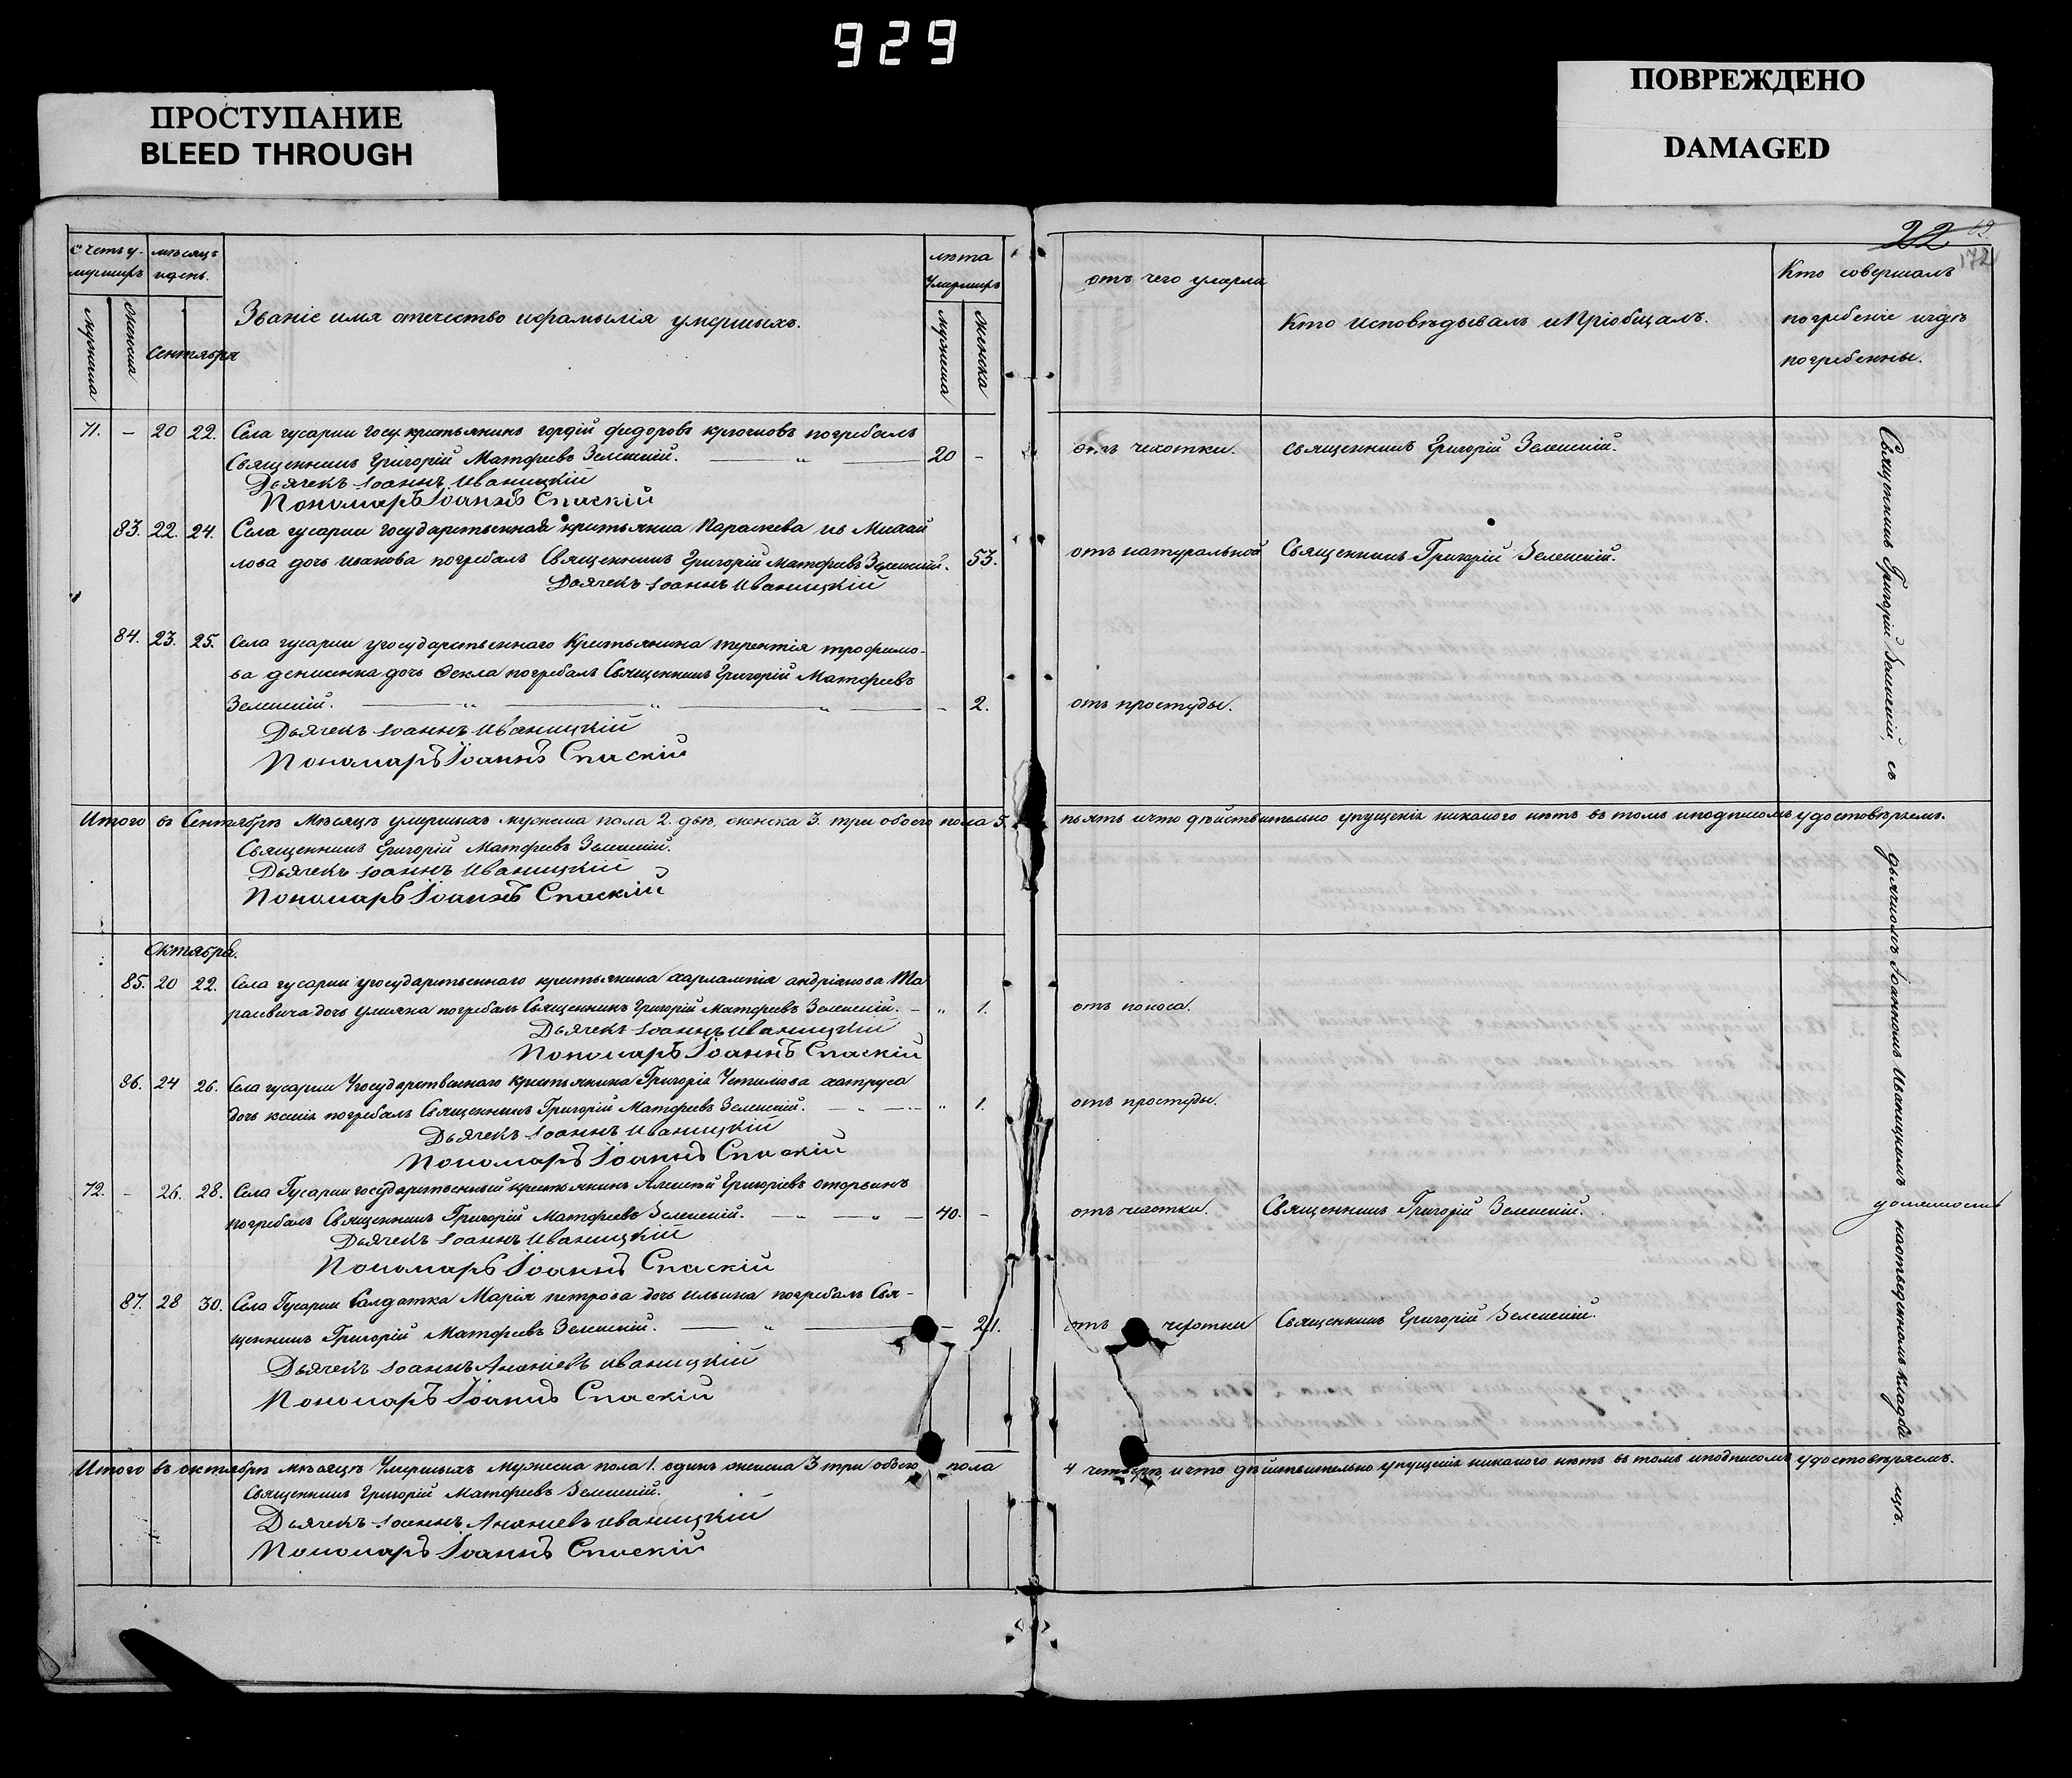 929
ПРОСТУПАНИЕ
BLEED THROUGH
ПОВРЕЖДЕНО
DAMAGED
22
172
счетъ у-
мершихъ
мѣсяцъ
идень.
мужеска
женска
Сентября
Званіе имя отечество ифамылія умершыхъ.
лѣта
Умершихъ
мужеска
женска
отъ чего умерла
Кто исповѣдывалъ иПріобщалъ.
Кто совершалъ
погребеніе игдѣ
погребенны.
71. – 20 22. Села гусарки госу. крестьянинъ гордѣй федоровъ крючковъ погребалъ
Священникъ Григорій Матфеевъ Зеленскій. 20 – отъ чехотки. священникъ Григорій Зеленскій.
Дьячекъ Іоаннъ Иваницкій
Пономарь Іоаннъ Спаскій
83. 22. 24. Села гусарки государственная крестьянка Параскева ив Михай
лова дочь иванова погребалъ Священникъ Григорій Матфеевъ Зеленскій. 53. отъ натуральной Священникъ Григорій Зеленскій.
Дьячекъ Іоаннъ Иваницкій
84. 23. 25. Села гусарки угосударственнаго Крестьянина терентія трофимо-
ва денисенка дочь Фекла погребалъ Священникъ Григорій Матфеевъ
Зеленскій. – 2. отъ простуды.
Дьячекъ Іоаннъ Иваницкій
Пономарь Іоаннъ Спаскій
Итого въ Сентябрѣ Мѣсяцѣ умершихъ мужеска пола 2. двѣ, женска 3. три обоего пола 5. пьять ичто дѣйствительно упущенія никакого нѣтъ въ томъ иподписомъ удостовѣряемъ.
Священникъ Григорій Матфеевъ Зеленскій.
Дьячекъ Іоаннъ Иваницкій
Пономарь Іоаннъ Спаскій
Октября.
85. 20 22. Села гусарки угосударственнаго крестьянина харлампія андріанова Ма
раевича дочь улияна погребалъ Священникъ Григорій Матфеевъ Зеленскій. – „ 1. отъ поноса.
Дьячекъ Іоаннъ Иваницкій
Пономарь Іоаннъ Спаскій
86. 24 26. Села гусарки Угосударственнаго крестьянина Григорія Устимова хатруса
дочь ксенія погребалъ Священникъ Григорій Матфеевъ Зеленскій. „ 1. отъ простуды.
Дьячекъ Іоаннъ Иваницкій
Пономарь Іоаннъ Спаскій
72. – 26. 28. Села Гусарки государственный крестьянинъ Алексѣй Григоріевъ оторвинъ
погребалъ Священникъ Григорій Матфеевъ Зеленскій. 40. – отъ чехотки. Священникъ Григорій Зеленскій.
Дьячекъ Іоаннъ Иваницкій
Пономарь Іоаннъ Спаскій
87. 28 30. Села Гусарки Салдатка Марія петрова дочь ильина погребалъ Свя-
щенникъ Григорій Матфеевъ Зеленскій. – 21. отъ чехотки Священникъ Григорій Зеленскій.
Дьячекъ Іоаннъ Ананіевъ Иваницкій
Пономарь Іоаннъ Спаскій
Итого въ октябрѣ мѣсяцѣ Умершыхъ мужеска пола 1. одинъ женска 3 три обоего пола 4 четыре, ичто дѣйствительно упущенія никакого нѣтъ въ томъ иподписомъ удостовѣряемъ.
Священникъ Григорій Матфеевъ Зеленскій.
Дьячекъ Іоаннъ Ананіевъ Иваницкій
Пономарь Іоаннъ Спаскій
Священникъ Григорій Зеленскій съ дьячкомъ Іоанномъ Иваницкимъ наотведенномъ кладби щѣ.